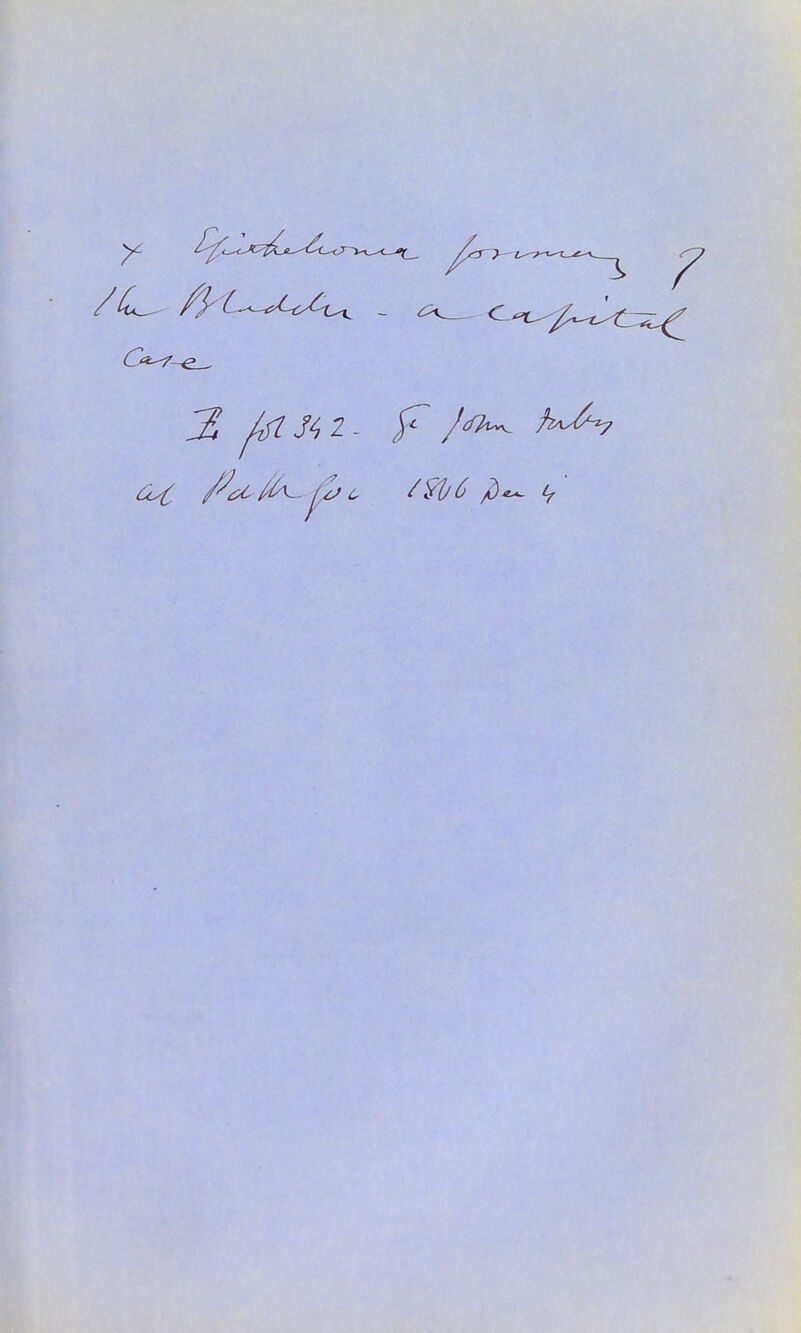 x Epithelioma primary of
the Bladder - a capital
Case
fol 342. John
at Path Soc Dec 4